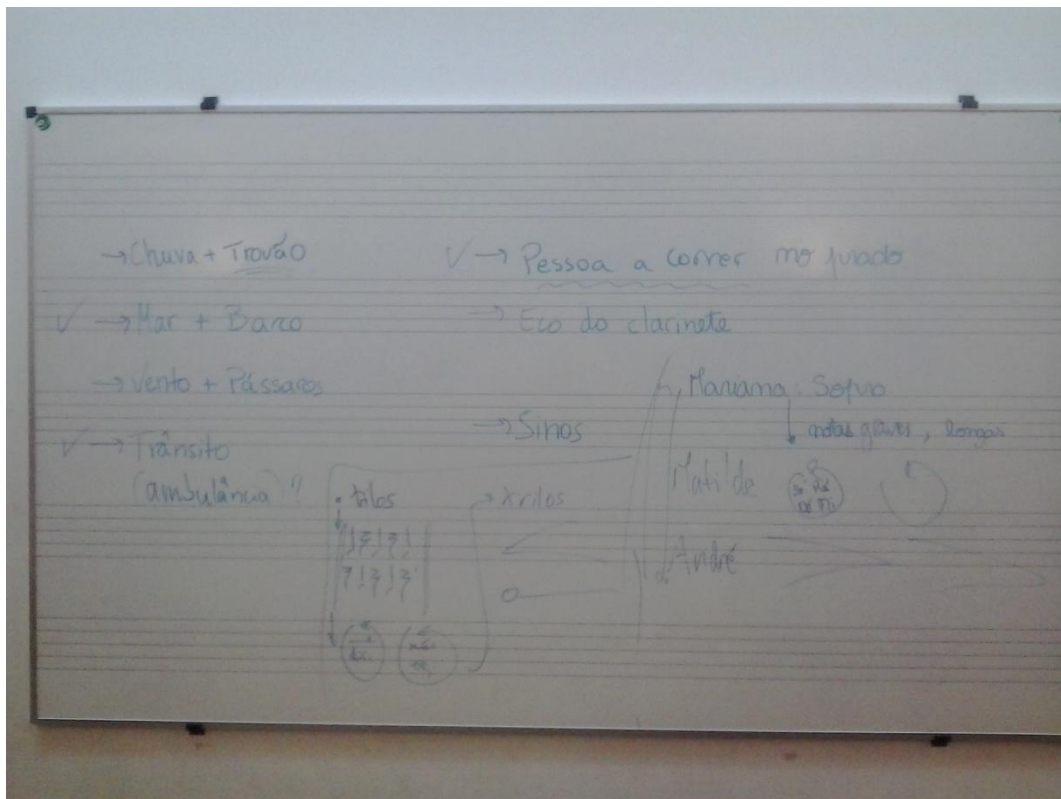 → Chuva + Trovão
✓ → Mar + Barco
→ Vento + Pássaros
✓ → Trânsito
(ambulância)
✓ → Pessoa a correr no prado
→ Eco do clarinete
→ Sinos
Mariana: Sopro
notas graves, longas
Matilde
André